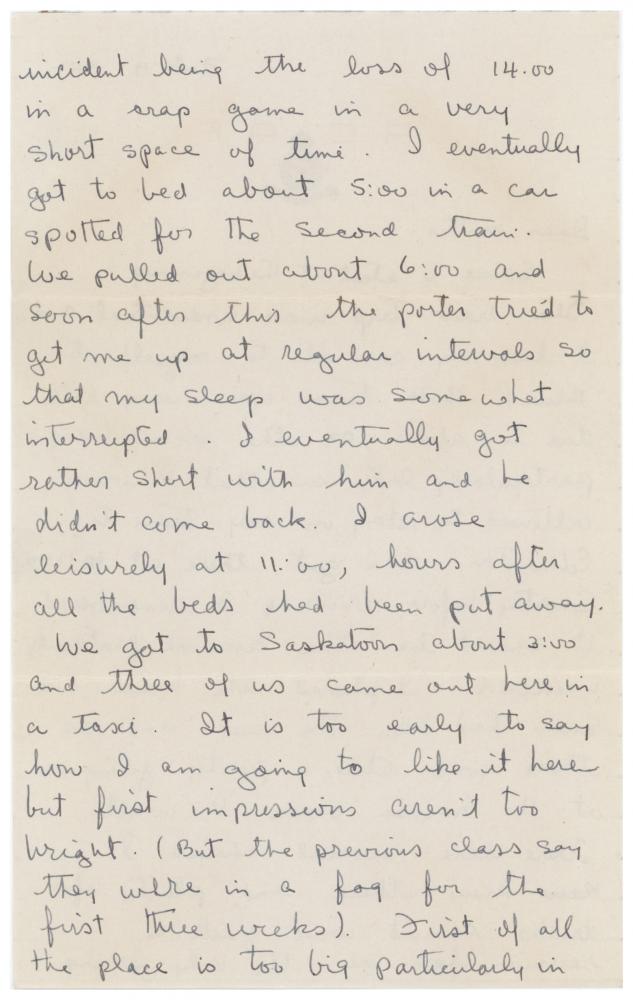 incident being the loss of 14.00
in a crap game in a very
short space of time. I eventually
got to bed about 5:00 in a car
spotted for the second train.
We pulled out about 6:00 and
soon after this the porter tried to
get me up at regular intervals so
that my sleep was somewhat
interrupted. I eventually got
rather short with him and he
didn't come back. I arose
leisurely at 11:00, hours after
all the beds had been put away.
We got to Saskatoon about 2:00
and three of us came out here in
a taxi. It is too early to say
how I am going to like it here
but first impressions aren't too
bright. (But the previous class say
they were in a fog for the
first three weeks). First of all
the place is too big particularly in